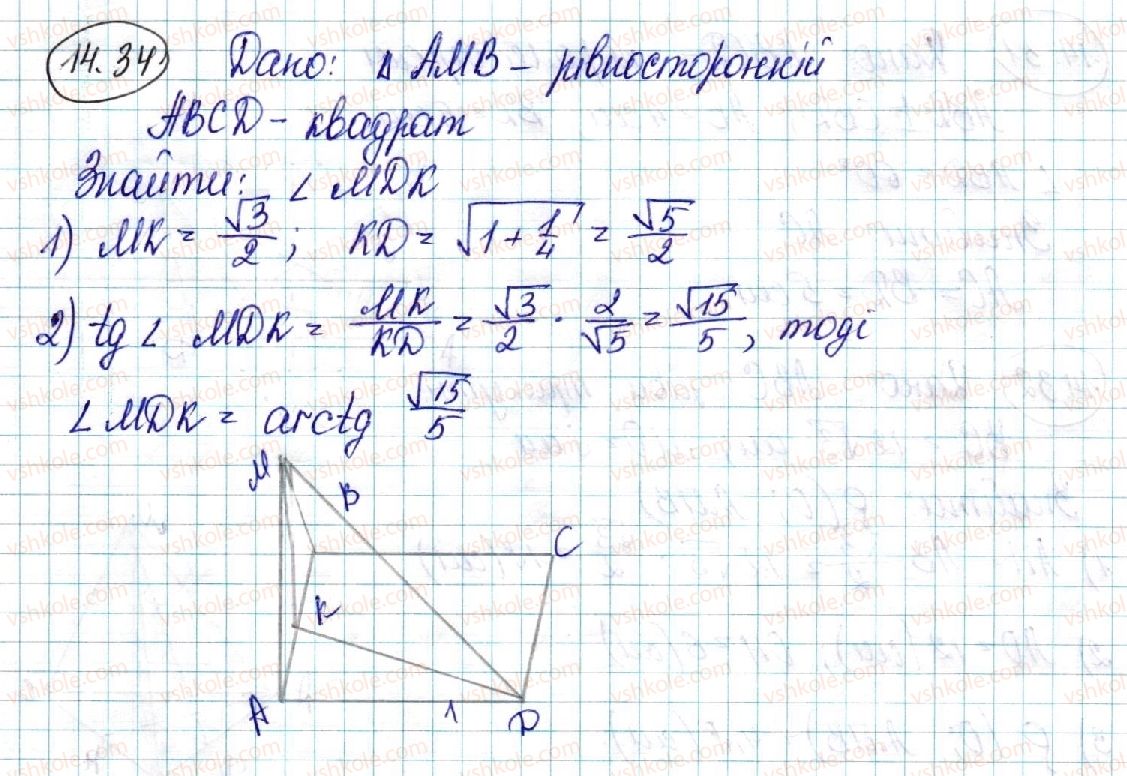 14.34 Дано: Δ AMB - рівносторонній
ABCD - квадрат
Знайти: ∠ MDK
1) MK = √3/2; KD = √(1 + 1/4) = √5/2
2) tg ∠ MDK = MK/KD = √3/2 · 2/√5 = √15/5, тоді
∠ MDK = arctg √15/5
M
B
C
K
A
1
D